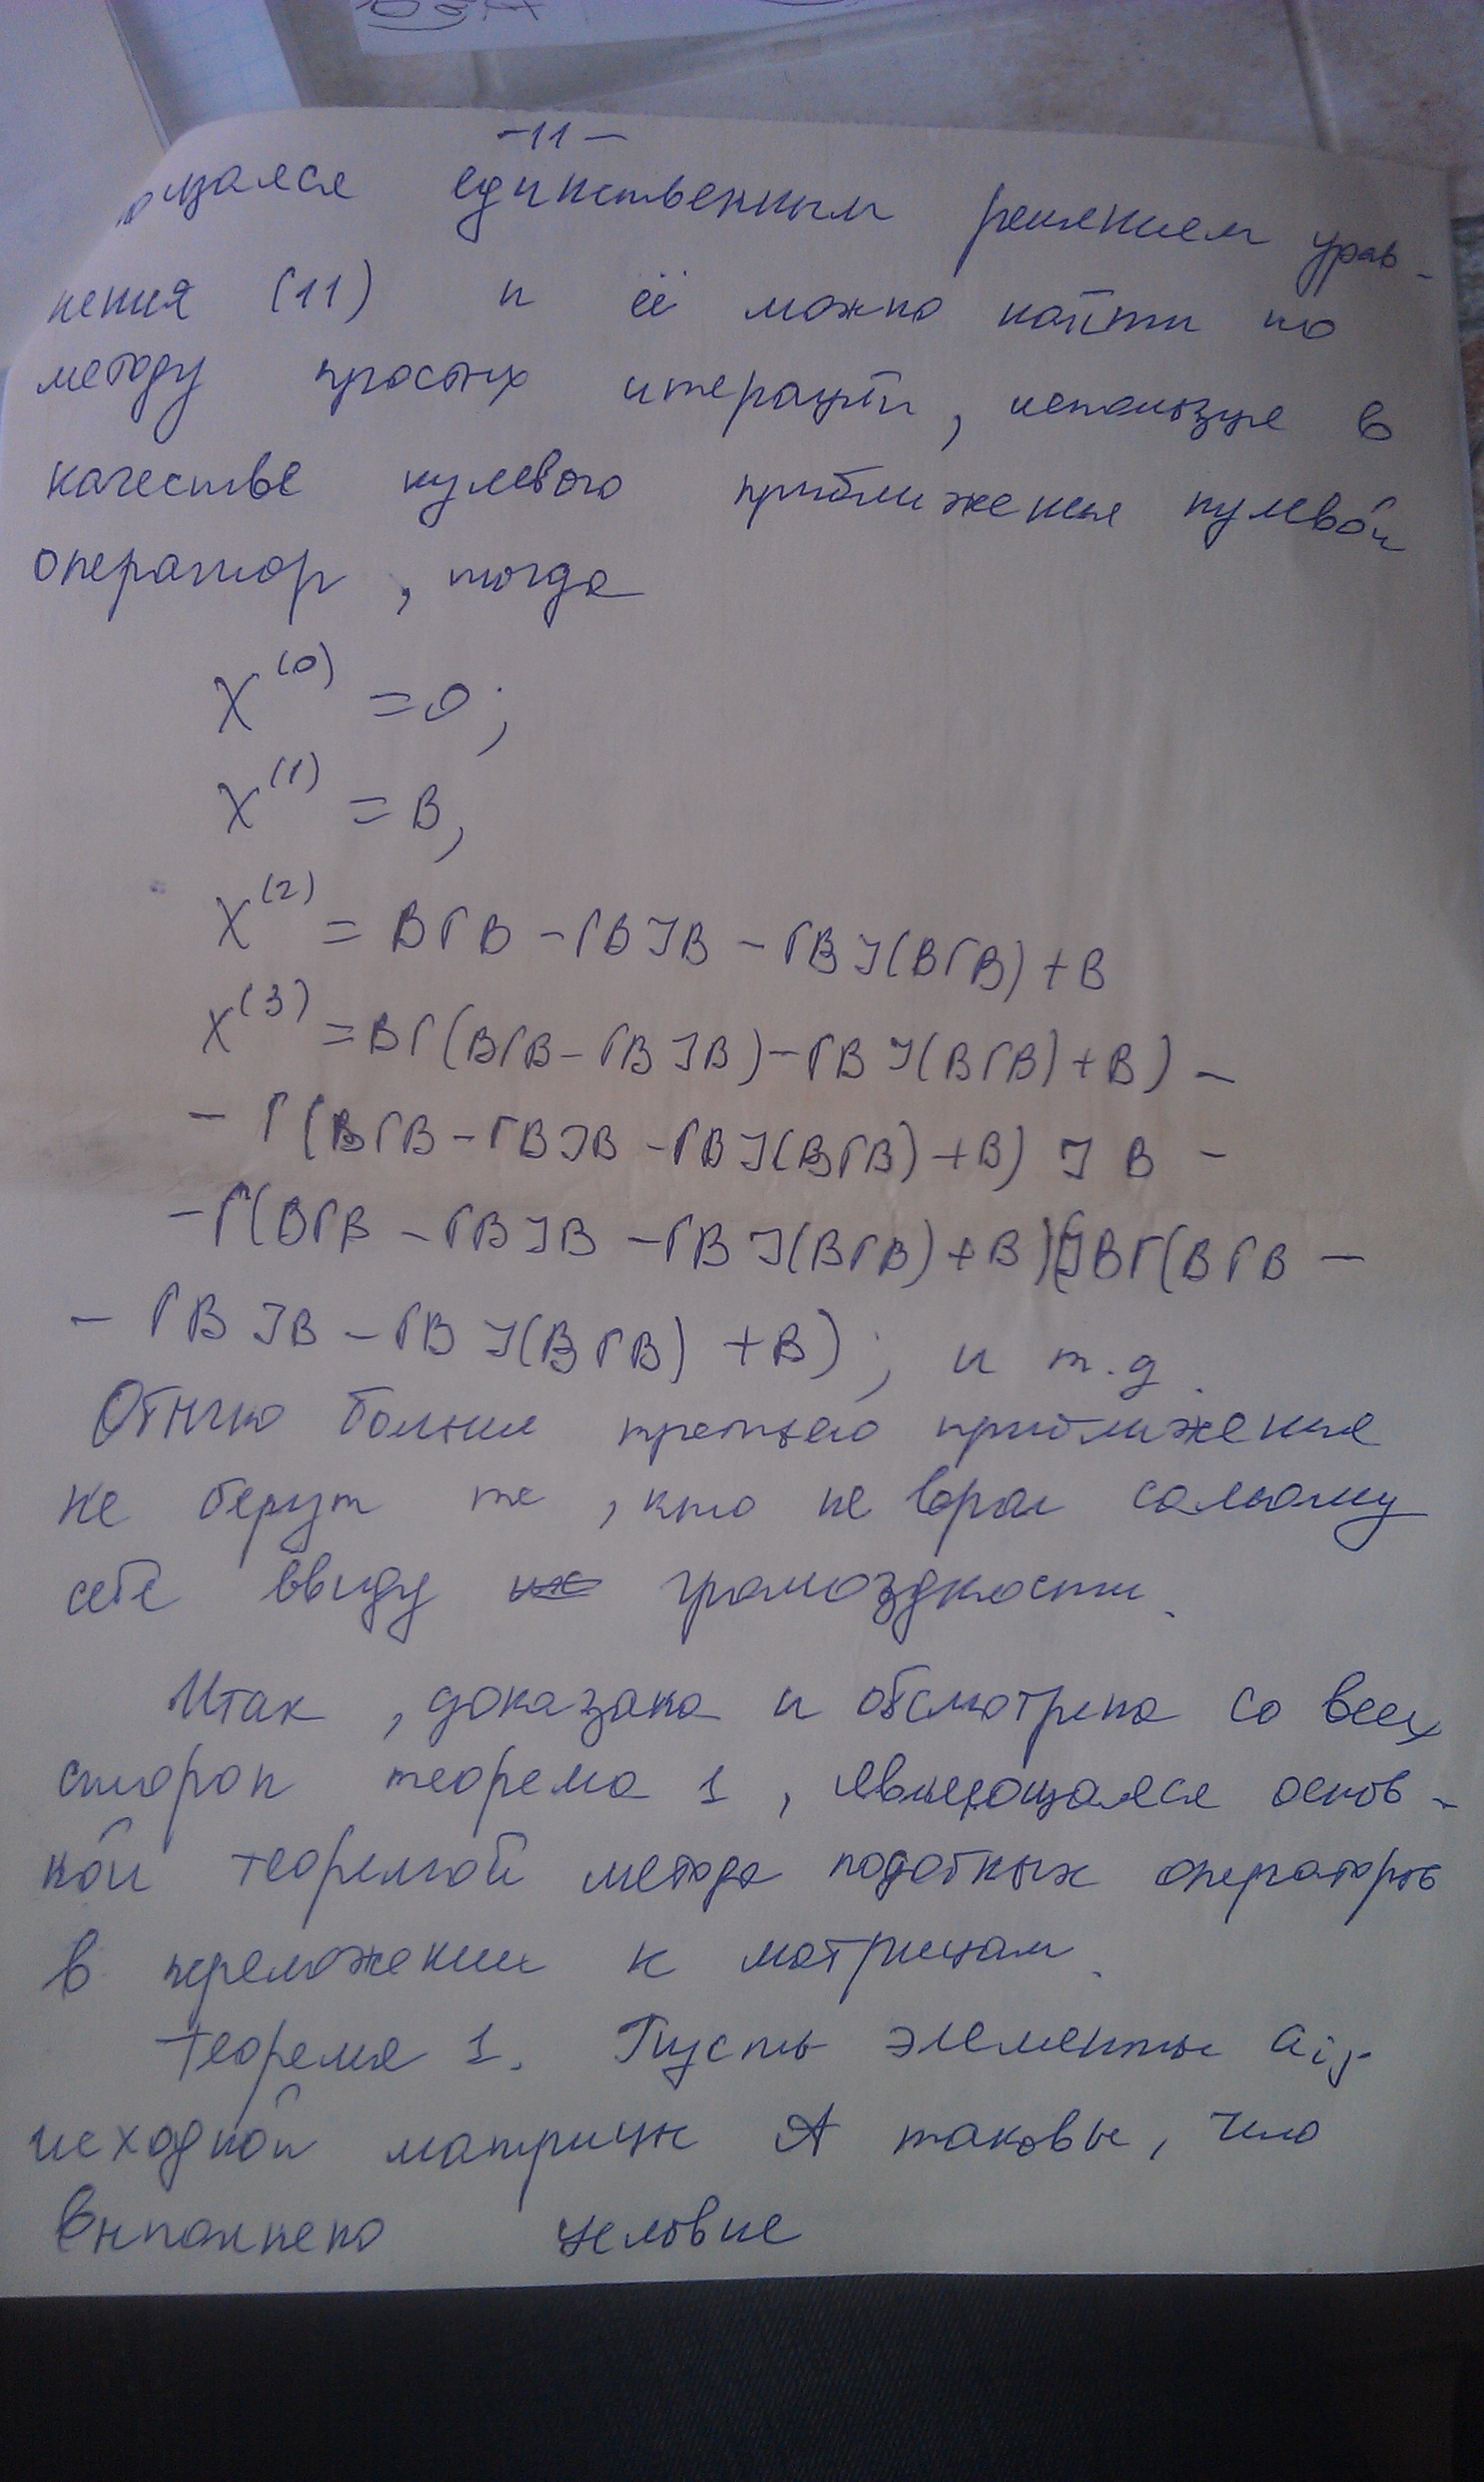 -11-
ющаяся единственным решением урав-
нения (11) и её можно найти по
методу простых итераций, используя в
качестве нулевого приближения нулевой
оператор, тогда
X^(0) = 0;
X^(1) = B,
X^(2) = BГB - ГBJB - ГBJ(BГB) + B
X^(3) = BГ(BГB - ГBJB) - ГBJ(BГB) + B) -
- Г(BГB - ГBJB - ГBJ(BГB) + B) J B -
- Г(BГB - ГBJB - ГBJ(BГB) + B)(JBГ(BГB -
- ГBJB - ГBJ(BГB) + B); и т.д.
Обычно больше третьего приближения
не берут те, кто не враг самому
себе ввиду громоздкости.
Итак, доказана и обсмотрена со всех
сторон теорема 1, являющаяся основ-
ной теоремой метода подобных операторов
в переложении к матрицам.
Теорема 1. Пусть элементы aij
исходной матрицы A таковы, что
выполнено условие